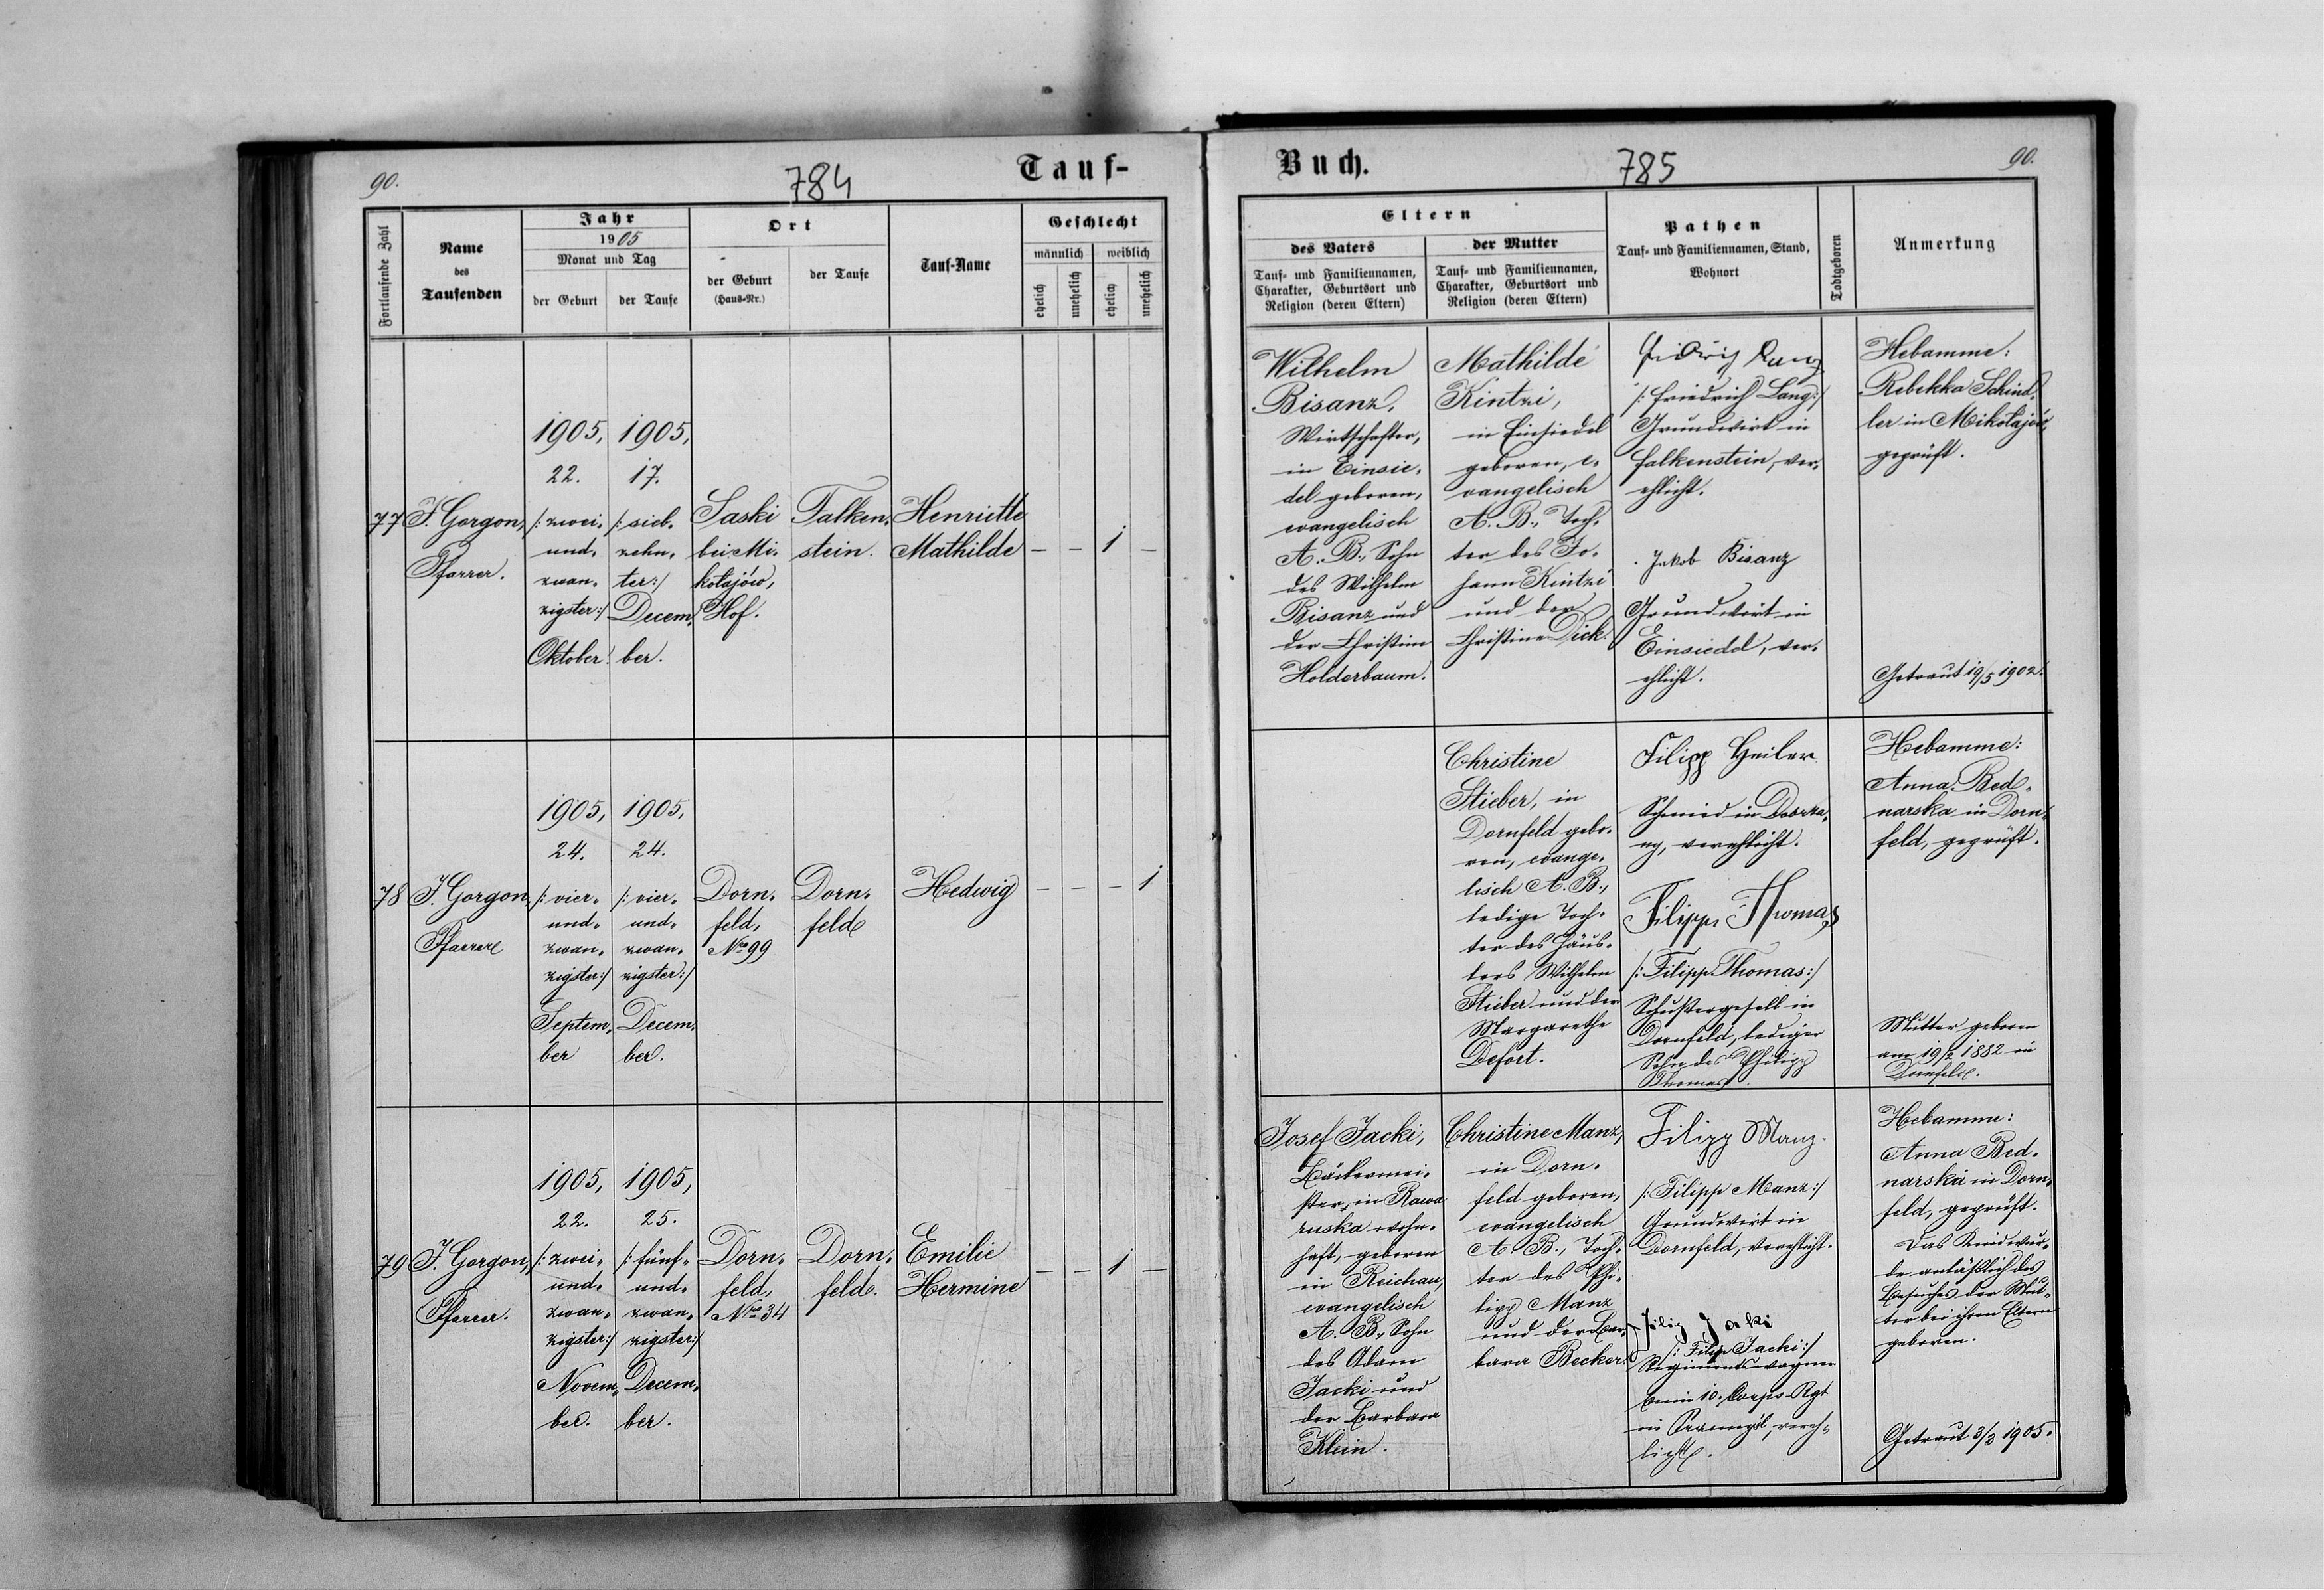 90.
784
Tauf-
Fortlaufende Zahl
Name
des
Taufenden
Jahr
1905
Monat und Tag
der Geburt
der Taufe
Ort
der Geburt
(Haus-Nr.)
der Taufe
Tauf-Name
Geschlecht
männlich
weiblich
ehelich
unehelich
ehelich
unehelich
77
F. Gorgon,
Pfarrer.
1905,
22.
/: zwei-
und-
zwan-
zigster:/
Oktober.
1905,
17.
/: sieb-
zehn-
ter:/
Decem-
ber.
Saski
bei Mi-
kołajów,
Hof.
Falken-
stein.
Henriette
Mathilde
– – 1 –
78
F. Gorgon
Pfarrer
1905,
24.
/: vier-
und-
zwan-
zigster:/
Septem-
ber
1905,
24.
/: vier-
und-
zwan-
zigster:/
Decem-
ber.
Dorn-
feld,
Nro 99
Dorn-
feld
Hedwig
– – – 1
79
F. Gorgon,
Pfarrer.
1905,
22.
/: zwei-
und-
zwan-
zigster:/
Novem-
ber.
1905,
25.
/: fünf-
und-
zwan-
zigster:/
Decem-
ber.
Dorn-
feld,
Nro 34
Dorn-
feld.
Emilie
Hermine
– – 1 –
Buch.
785
90.
Eltern
des Vaters
Tauf- und Familiennamen,
Charakter, Geburtsort und
Religion (deren Eltern)
der Mutter
Tauf- und Familiennamen,
Charakter, Geburtsort und
Religion (deren Eltern)
Pathen
Tauf- und Familiennamen, Stand,
Wohnort
Todtgeboren
Anmerkung
Wilhelm
Bisanz,
Wirtschafter,
in Einsie-
del geboren,
evangelisch
A. B., Sohn
des Wilhelm
Bisanz und
der Christine
Holderbaum.
Mathilde
Kintzi,
in Einsiedel
geboren, e-
vangelisch
A. B., Toch-
ter des Jo-
hann Kintzi
und der
Christine Dick.
/: Friedrich Lang:/
Grundwirt in
Falkenstein, ver-
ehlicht.
Jakob Bisanz
Grundwirt in
Einsiedel, ver-
ehlicht.
Hebamme:
Rebekka Schind-
ler in Mikołajów,
geprüft.
Getraut 19/5 1902.
Christine
Stieber, in
Dornfeld gebo-
ren, evange-
lisch A. B.,
ledige Toch-
ter des Häus-
lers Wilhelm
Stieber und der
Margarethe
Defort.
Filipp Heiler
Schmied in
verehlicht.
Filipp Thomas
/: Filipp Thomas:/
Schustergeselle in
Dornfeld, lediger
Sohn des Philipp
Thomas.
Hebamme:
Anna Bed-
narska in Dorn-
feld, geprüft.
Mutter geboren
am 19/2 1882 in
Dornfeld.
Josef Jacki,
Bäckermei-
ster, in Rawa
ruska wohn-
haft, geboren
in Reichau,
evangelisch
A. B., Sohn
des Adam
Jacki und
der Barbara
Klein.
Christine Manz,
in Dorn-
feld geboren,
evangelisch
A. B., Toch-
ter des Phi-
lipp Manz
und der Bar-
bara Becker.
Filipp Manz.
/: Filipp Manz:/
Grundwirt in
Dornfeld, verehlicht.
Filip Jaki
/: Filip Jacki:/
beim 10. Corps-Rgt
in Przemyśl, vereh-
licht.
Hebamme:
Anna Bed-
narska in Dorn-
feld, geprüft.
Das Kind wur-
de anläßlich des
Besuches der Mut-
ter bei ihren Eltern
geboren.
Getraut 3/3 1905.